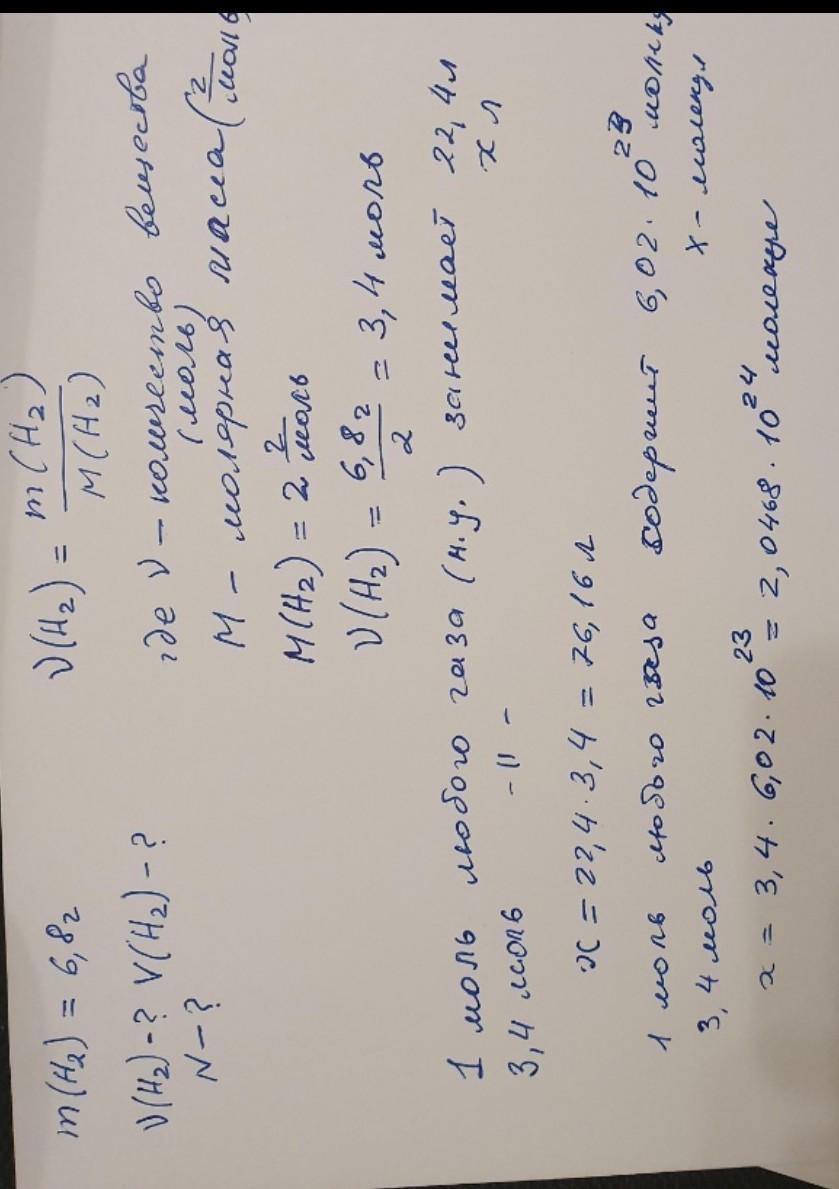 m(H₂) = 6,8г
ν(H₂)-? V(H₂)-?
N-?
ν(H₂) = m(H₂) / M(H₂)
где ν – количество вещества
(моль)
M – молярная масса (г/моль
M(H₂) = 2 г/моль
ν(H₂) = 6,8г / 2 = 3,4 моль
1 моль любого газа (н.у.) занимает 22,4л
3,4 моль -"- x л
x = 22,4 · 3,4 = 76,16 л
1 моль любого газа содержит 6,02 · 10²³ молек
3,4 моль x - молекул
x = 3,4 · 6,02 · 10²³ = 2,0468 · 10²⁴ молекул